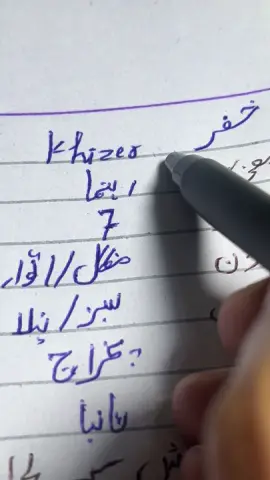 خضر Khizer
رہنما
7
منگل/اتوار
سبز/نیلا
پکھراج
تانبا